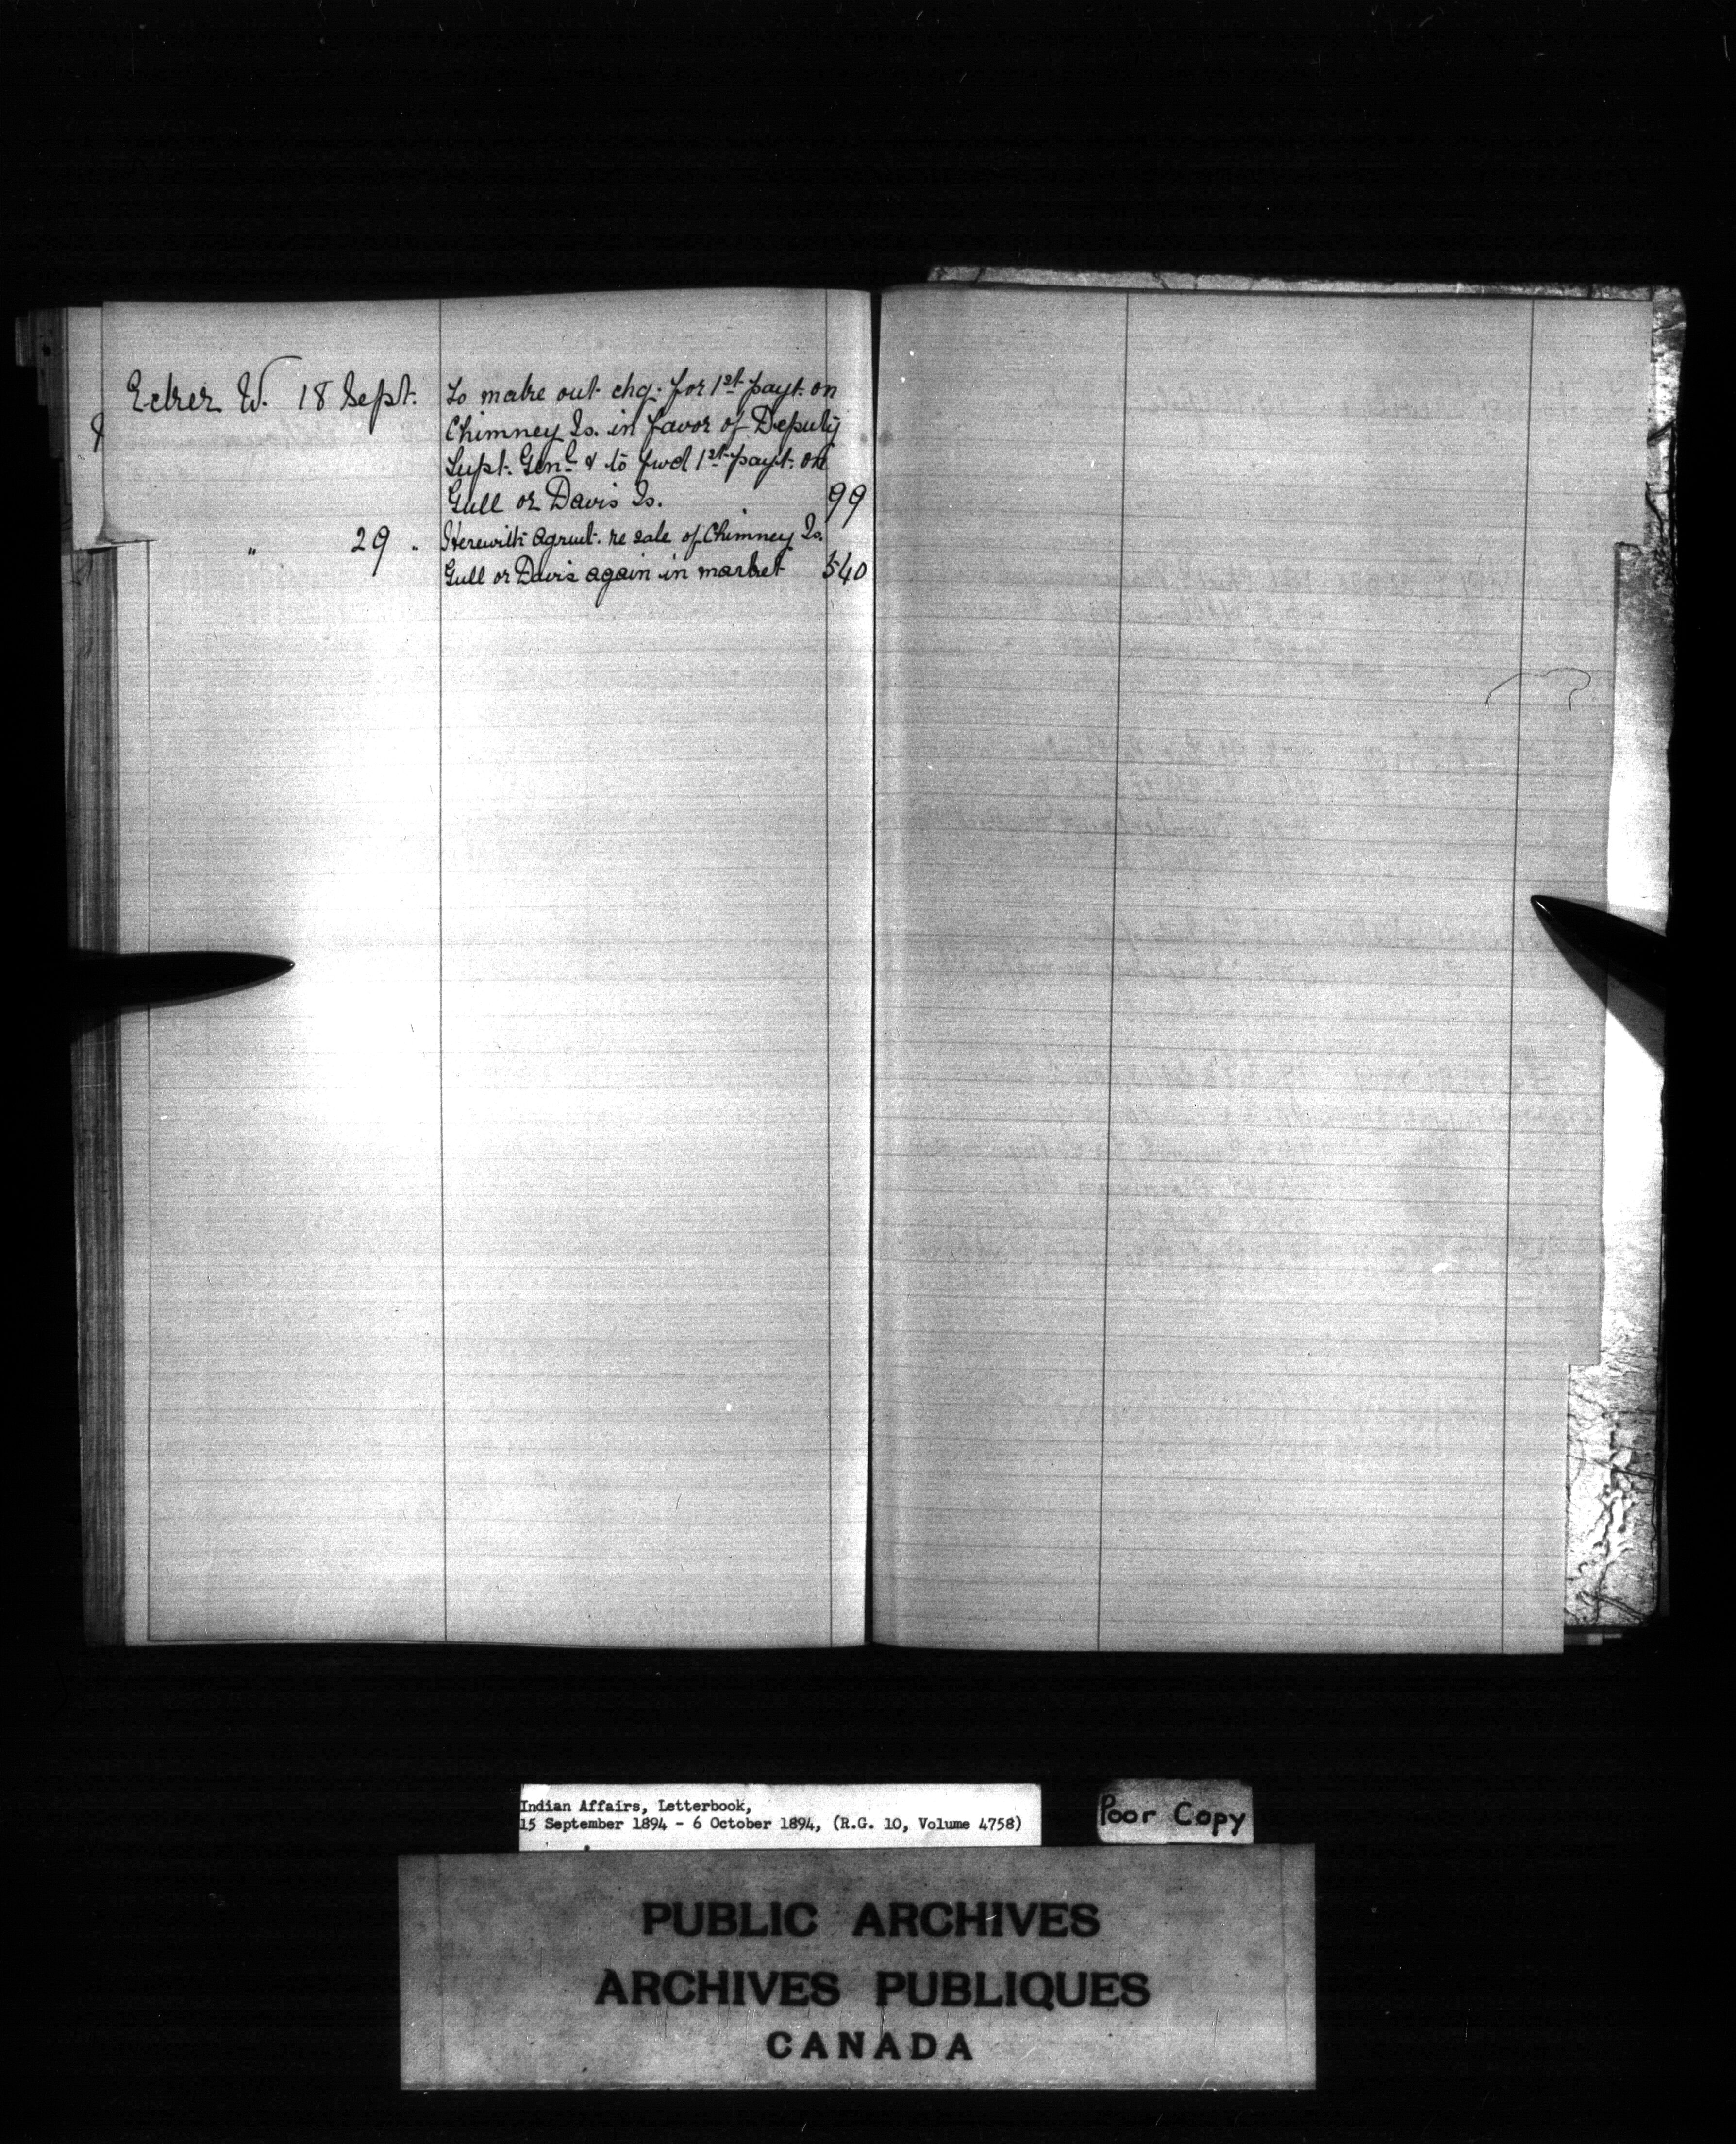 Edrer W. 18 Sept. To make out chq. for 1st payt. on
Chimney Is. in favor of Deputy
Supt. Genl & to fwd 1st payt. on
Gull or Davis Is. 99
" 29 " Herewith agrmt. re sale of Chimney Is.
Gull or Davis again in market 540
Indian Affairs, Letterbook,
15 September 1894 - 6 October 1894, (R.G. 10, Volume 4758)
Poor Copy
PUBLIC ARCHIVES
ARCHIVES PUBLIQUES
CANADA